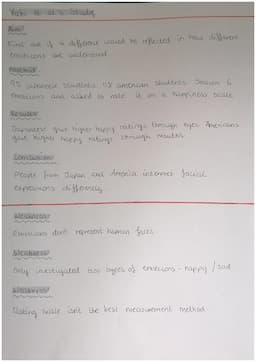 Yuki et al's study
Aim
Find out if a difference would be reflected in how different
emoticons are understood.
Method
95 Japanese students. 118 american students. Shown 6
emoticons and asked to rate it on a happiness scale
Results
Japanese give higher happy ratings through eyes. Americans
give higher happy ratings through mouths.
Conclusion
People from Japan and America interpret facial
expressions differently
Weakness
Emoticons don't represent human faces
Weakness
Only investigated two types of emotions - happy / sad
Weakness
Rating scale isn't the best measurement method